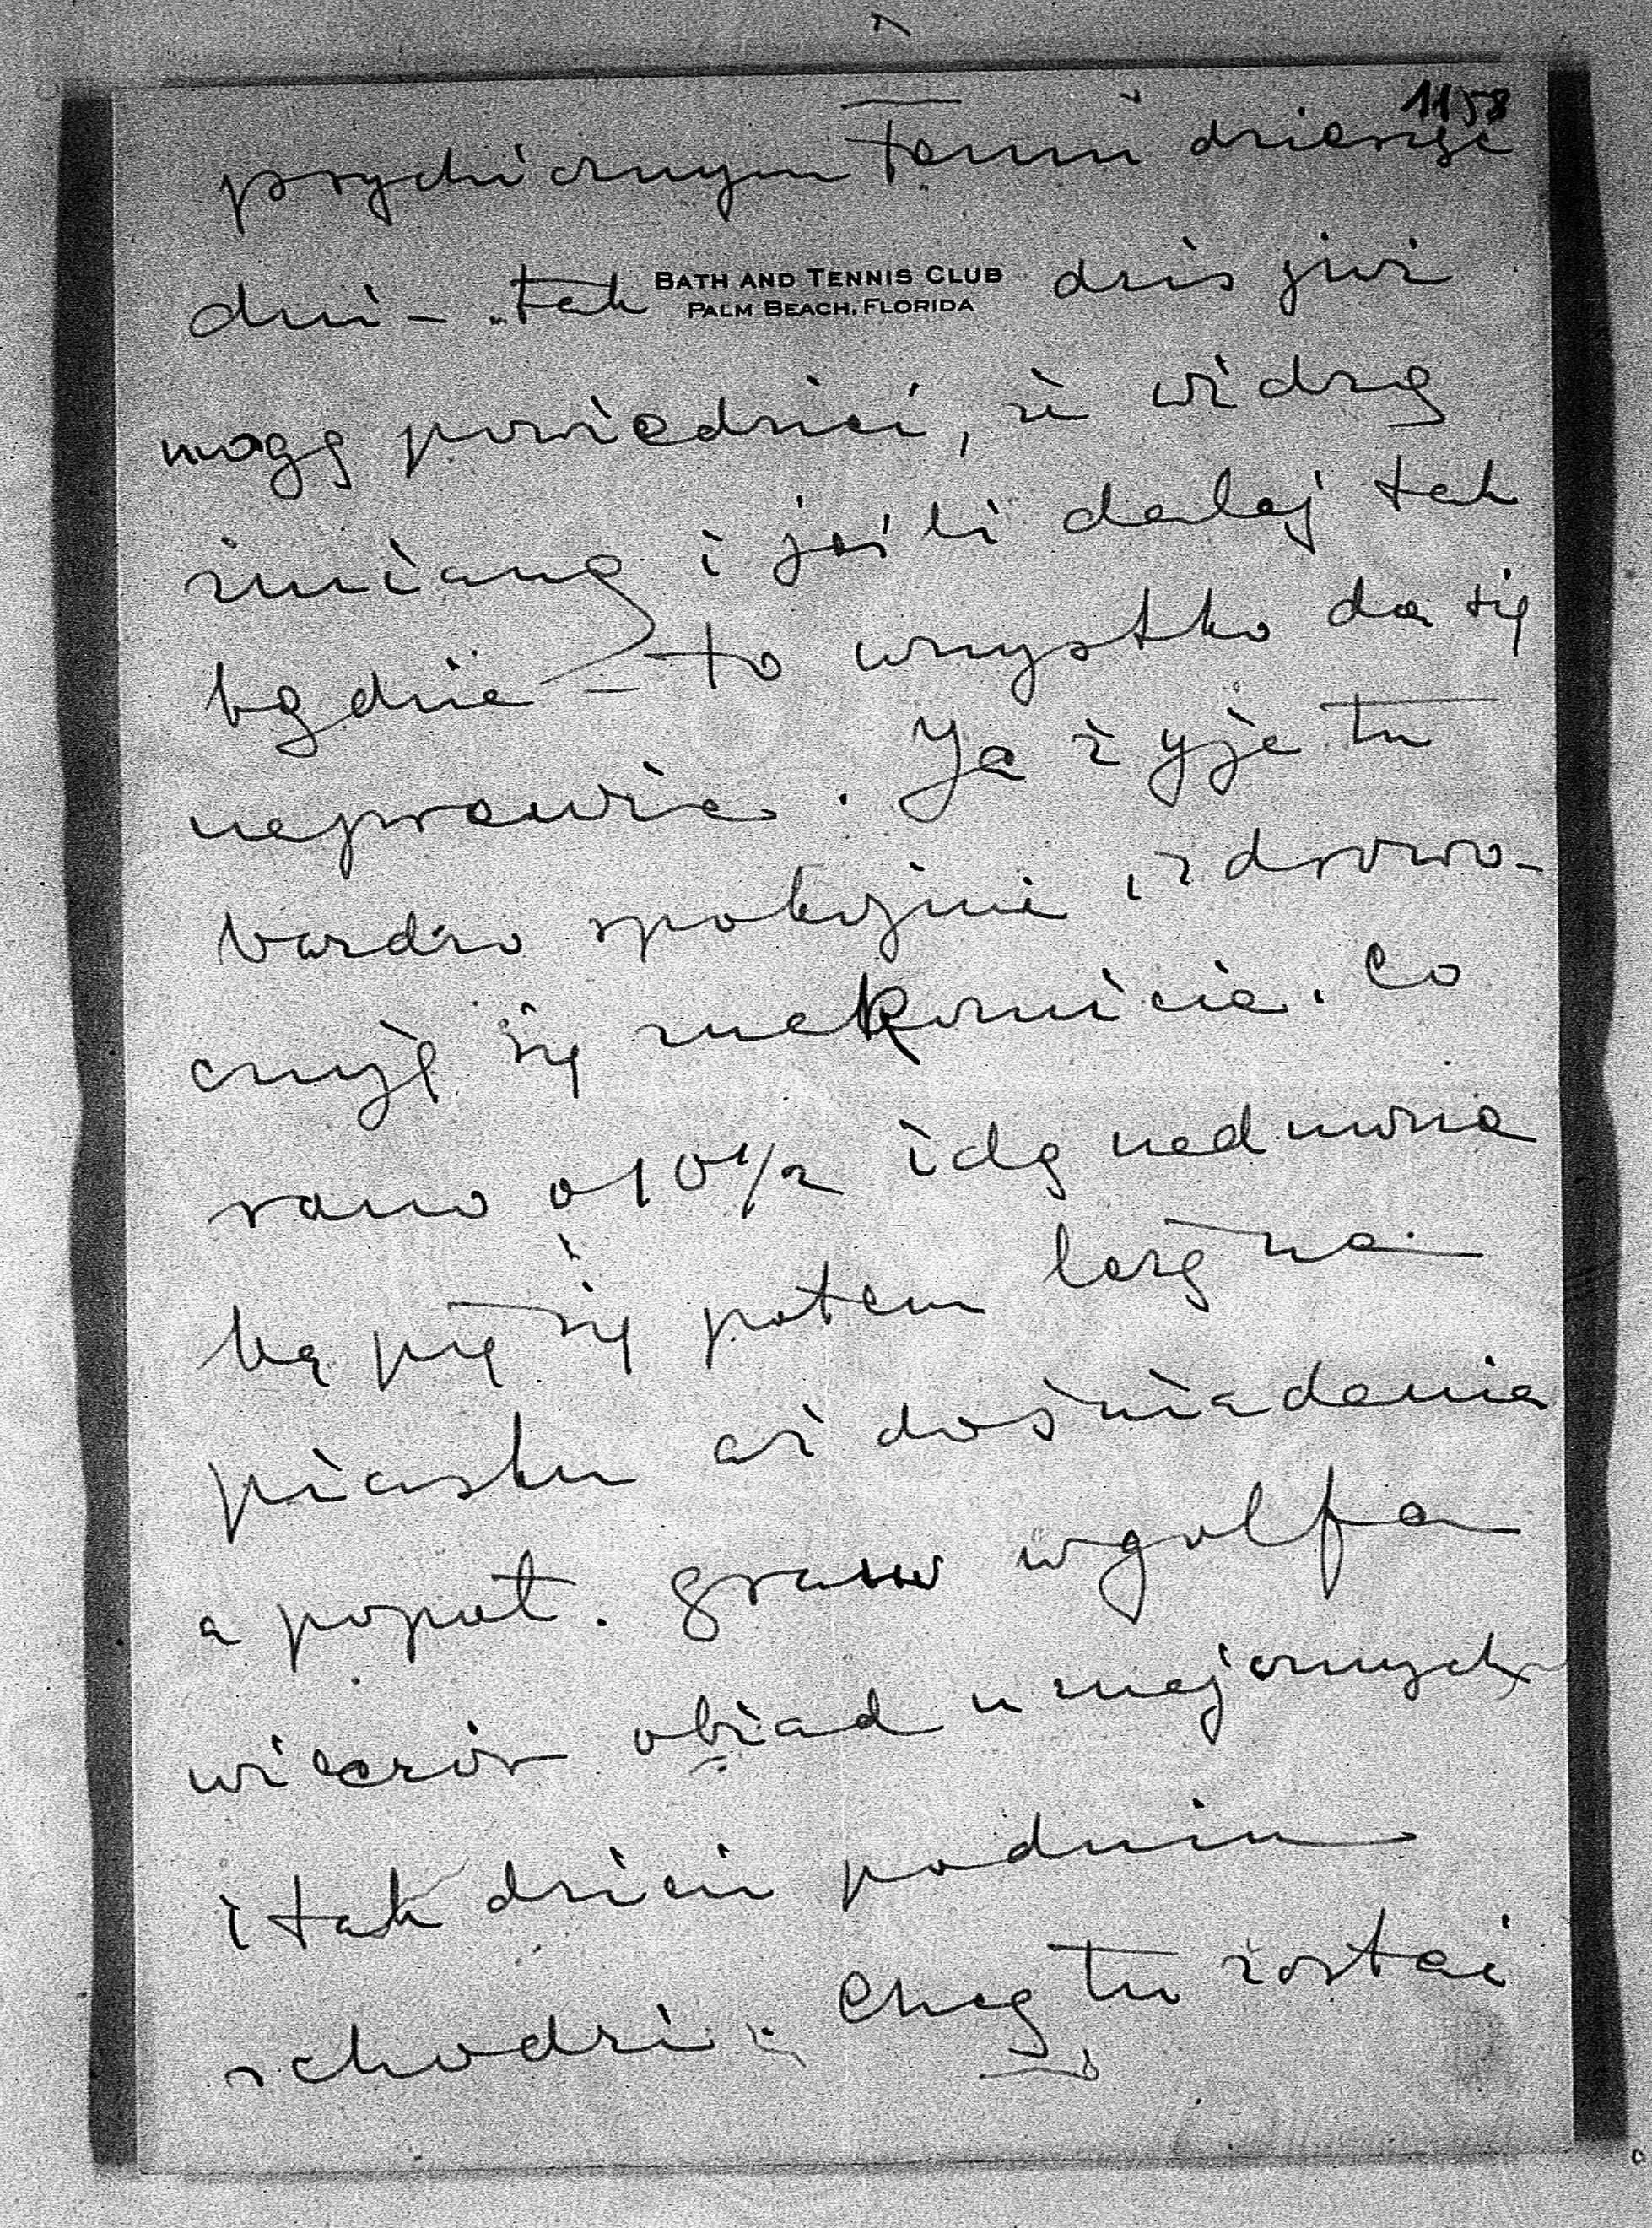 1158
psychicznym temu dziesięć
BATH AND TENNIS CLUB
PALM BEACH, FLORIDA
dni – tak dziś już
mogę powiedzieć, że widzę
zmianę i jeśli dalej tak
będzie – to wszystko da się
naprawić. Ja żyję tu
bardzo spokojnie i zdrowo –
czuję się znakomicie. Co
rano o 10 1/2 idę nad morze
kąpię się potem leżę na
piasku aż do śniadania
a popoł. gram w golfa
wieczór obiad u znajomych
i tak dzień po dniu
schodzi. Chcę tu zostać